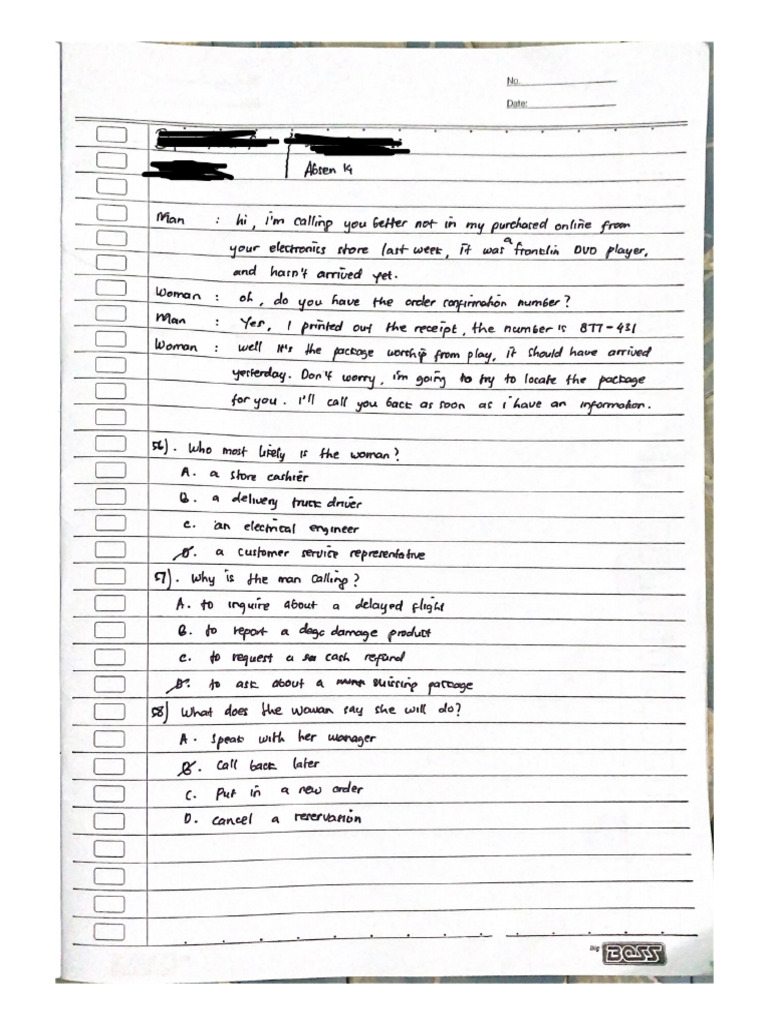 No.
Date:
Absen 14
Man : hi, i'm calling you better not in my purchased online from
your electronics store last week, it was a franklin DVD player,
and hasn't arrived yet.
Woman : oh, do you have the order confirmation number?
Man : Yes, I printed out the receipt, the number is 877-431
Woman : well It's the package worship from play, it should have arrived
yesterday. Don't worry, i'm going to try to locate the package
for you. I'll call you back as soon as i have an information.
56). Who most likely is the woman?
A. a store cashier
B. a delivery truck driver
C. an electrical engineer
D. a customer service representative
57). Why is the man calling?
A. to inquire about a delayed flight
B. to report a damage product
C. to request a cash refund
D. to ask about a missing package
58) What does the woman say she will do?
A. Speak with her manager
B. Call back later
C. Put in a new order
D. Cancel a reservation
Big BOSS